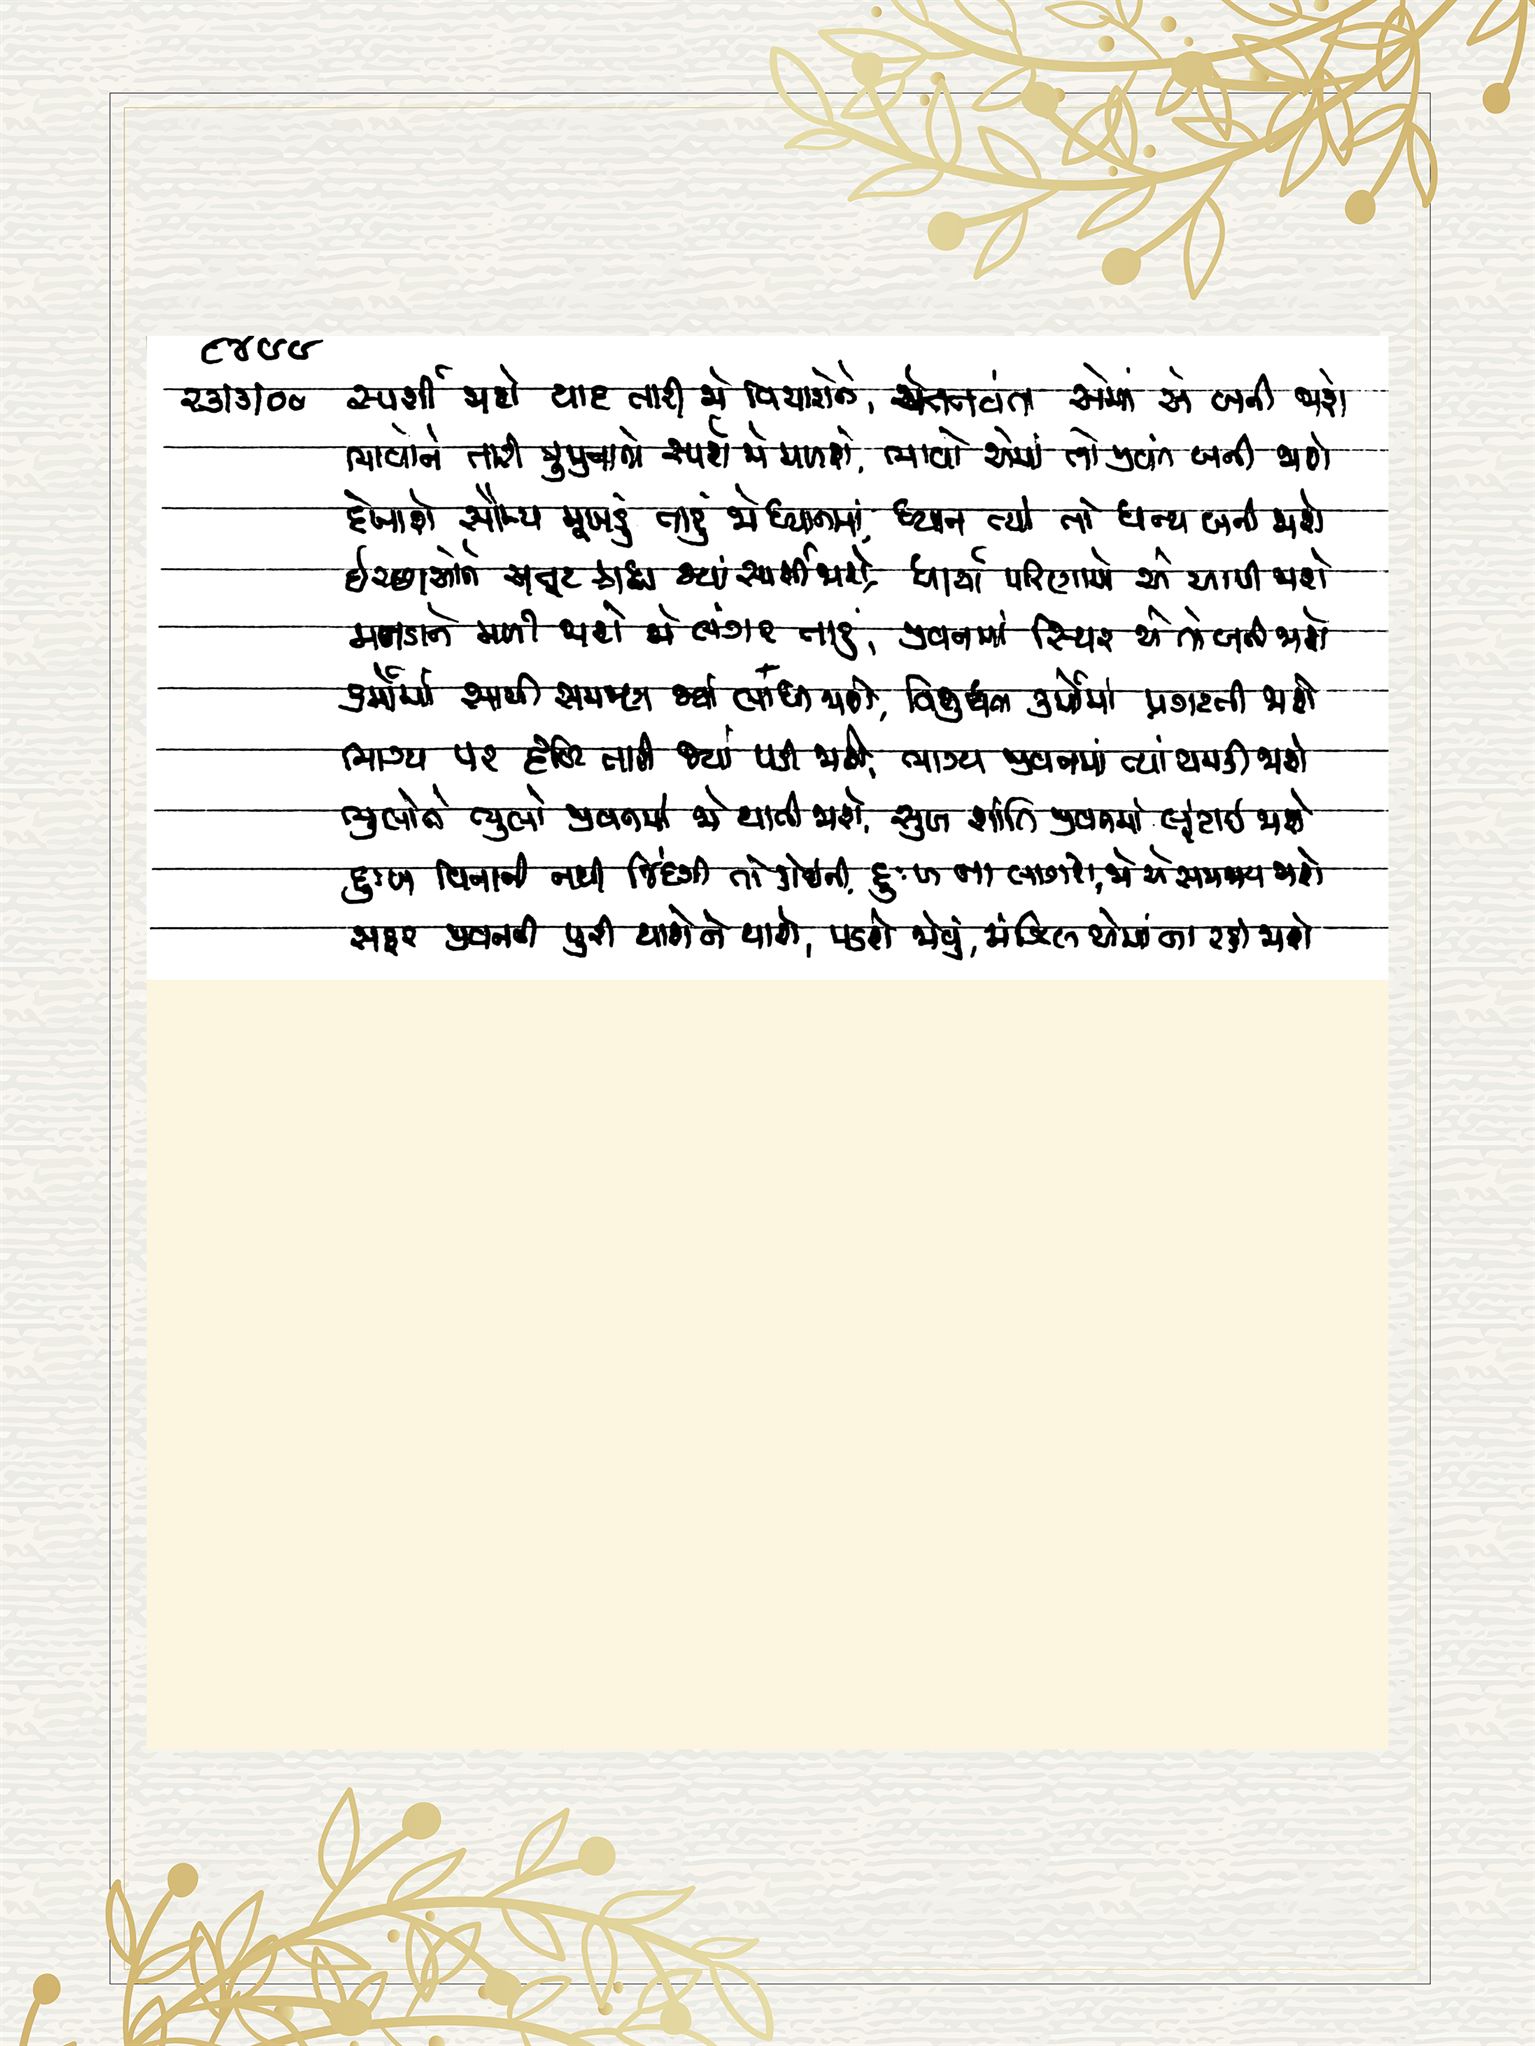 ૮૪૭૭
૨૩/૩/૦૦ સ્પર્શી જાશે યાદ તારી જો વિચારોને, ચેતનવંતા એમાં એ બની જાશે
ભાવોને તારી કૃપાનો સ્પર્શ જો મળશે, ભાવો એમાં તો જીવંત બની જાશે
દેખાશે સૌમ્ય મૂખડું તારું જો ધ્યાનમાં, ધ્યાન ત્યાં તો ધન્ય બની જાશે
ઈચ્છાઓને અતૂટ શ્રદ્ધા જ્યાં સ્પર્શી જાશે, ધાર્યા પરિણામો એ આપી જાશે
મનડાને મળી જાશે જો લંગર તારું, જીવનમાં સ્થિર એ તો બની જાશે
કર્મોમાં સાચી સમજણ જ્યાં લાધી જાશે, વિશુદ્ધતા કર્મોમાં પ્રગટતી જાશે
ભાગ્ય પર દૃષ્ટિ તારી જ્યાં પડી જાશે, ભાગ્ય જીવનમાં ત્યાં ચમકી જાશે
ભુલોને ભુલો જીવનમાં જો થાતી જાશે, સુખ શાંતિ જીવનમાં લૂંટાઈ જાશે
દુઃખ વિનાની નથી જિંદગી તો કોઈની, દુઃખ ના લાગશે, જો એ સમજાય જાશે
સફર જીવનની પુરી થાશે ને થાશે, પડશે જોવું, મંઝિલ એમાં ના રહી જાશે